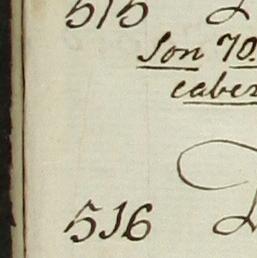 515
Son 70.
caber
516